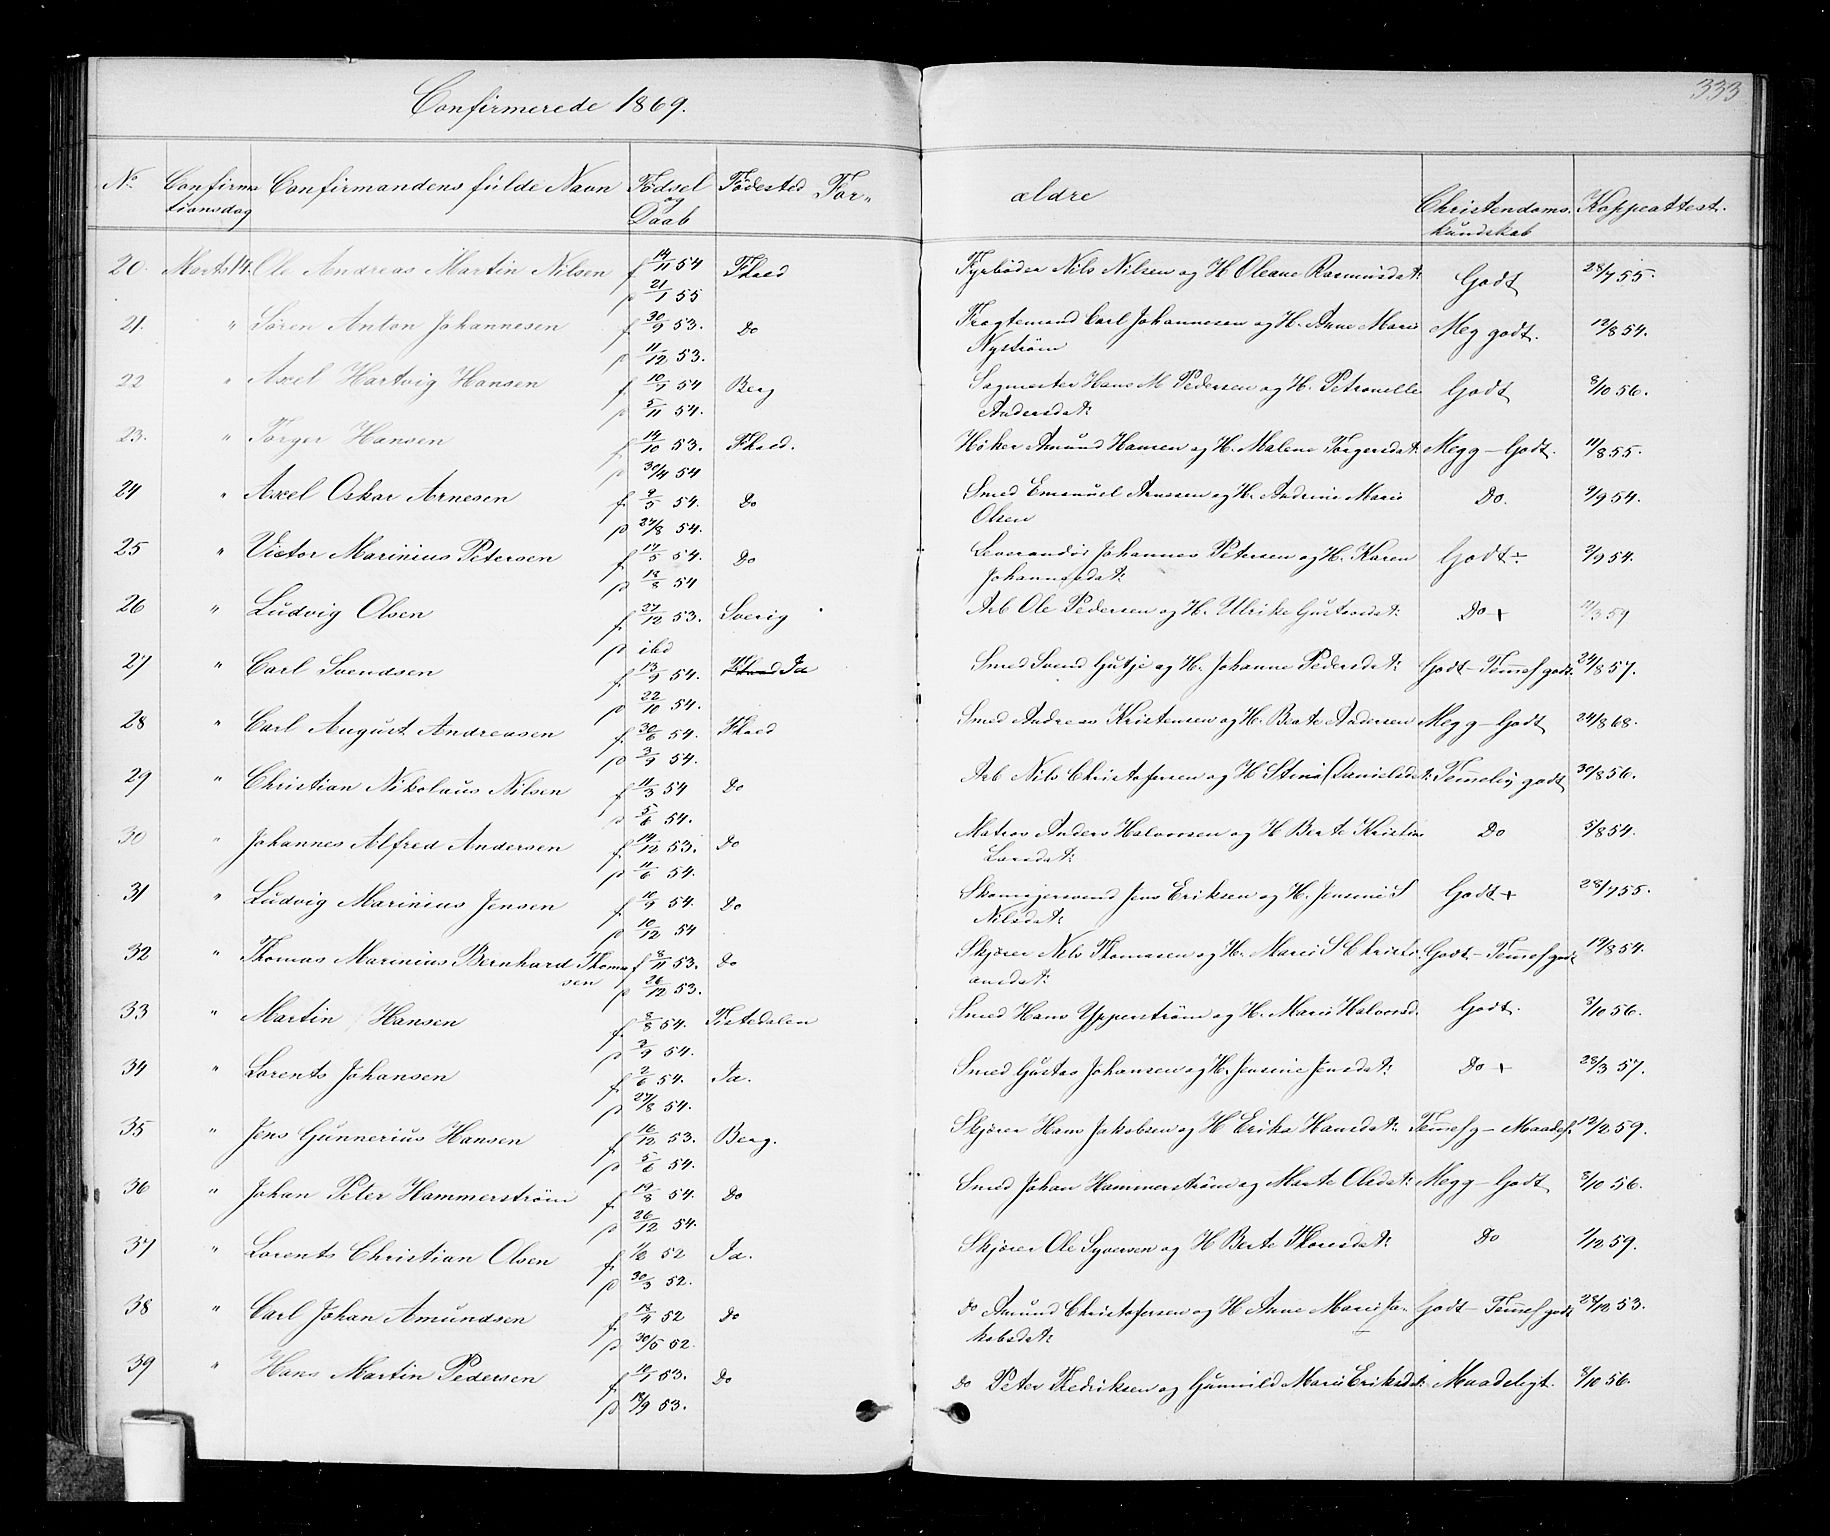 333
Confirmerede 1869.
No Confirma Confirmandens fulde Navn Fødsel Fødested For- ældre Christendoms- Koppeattest.
tionsdag og Daab kundskab
20. Marts 14. Ole Andreas Martin Nilsen f 14/11 54 Fhald Fyrbøder Nils Nilsen og H. Oleane Rasmusdat: Godt 28/7 55.
p 21/1 55
21. " Søren Anton Johannesen f. 30/9 53. Do Fragtemand Carl Johannesen og H. Anne Marie Meg godt. 12/8 54.
p 11/12 53. Nystrøm
22 " Axel Hartvig Hansen f. 10/9 54 Berg Sagmester Hans M Pedersen og H. Petronelle Godt 8/10 56.
p 5/11 54. Andersdat:
23. " Torger Hansen f. 14/10 53. Fhald. Høker Amund Hansen og H. Malene Torgersdat: Megg-Godt. 11/8 55.
p 30/4 54
24 " Axel Oskar Arnesen f. 2/5 54. Do Smed Emanuel Arnesen og H. Andrine Marie Do. 9/9 54.
p 27/8 54. Olsen
25 " Victor Marinius Petersen f. 14/5 54. Do Leverandør Johannes Petersen og H. Karen Godt÷ 2/9 54.
p 13/8 54 Johannesdat:
26 " Ludvig Olsen f. 27/12 53. Sverig Arb Ole Pedersen og H. Ulrike Gustavsdat: Do + 21/3 59
p ibd
27 " Carl Svendsen f. 13/9 54. Fhald Id Smed Svend Gutje og H. Johanne Pedersdat: Godt-Temmel godt. 24/8 57.
p 22/10 54.
28 " Carl August Andreasen f. 30/6 54. Fhald Smed Andreas Kristensen og H. Berte Andersen Megg-Godt 24/8 68.
p 3/9 54.
29 " Christian Nikolaus Nilsen f. 11/3 54 Do Arb Nils Christofersen og H Stina Danielsdat: Temmelig godt 30/8 56.
p 5/6 54.
30 " Johannes Alfred Andersen f. 14/12 53. Do Matros Anders Halvorsen og H Berte Kristine Do 5/8 54.
p 11/6 54. Larsdat:
31 " Ludvig Marinius Jensen f. 10/9 54. Do Skomagersvend Jens Eriksen og H. Jensine S Godt + 28/7 55.
p 10/12 54 Nilsdat:
32 " Thomas Marinius Bernhard Thoma f 8/11 53. Do Skjører Nils Thomasen og H. Marie S Christi- Godt-Temmel godt 19/8 54.
sen p 26/12 53. ansdat:
33 " Martin Hansen f. 8/8 54. Tistedalen Smed Hans Ypperstrøm og H. Marie Halvorsd. Godt. 8/10 56.
p 3/9 54.
34 " Lorents Johansen f. 2/6 54. Id. Smed Gustav Johansen og H. Jensine Jensdat: Do + 28/3 57.
p 27/8 54.
35 " Jens Gunnerius Hansen f. 16/12 53. Berg. Skjører Hans Jakobsen og H Erika Hansdat: Temmel g- Maadel. 12/2 59.
p 5/6 54.
36 " Johan Peter Hammerstrøm f. 19/8 54. Do Smed Johan Hammerstrøm og Marte Olsdat: Megg-Godt 8/10 56.
p 26/12 54.
37 " Lorents Christian Olsen f. 1/2 52 Id. Skjører Ole Syversen og H Berte Thoresdat: Do 1/12 59.
p 30/3 52.
38 " Carl Johan Amundsen f. 18/4 52 Do do Amund Christofersen og H. Anne Marie Ja- Godt-Temmel godt 28/12 53.
p 30/5 52. kobsdat:
39 " Hans Martin Pedersen f. 10/1 53. Do do Peter Fredriksen og Gunnild Marie Eriksdat: Maadeligt. 8/10 56.
p 18/9 53.